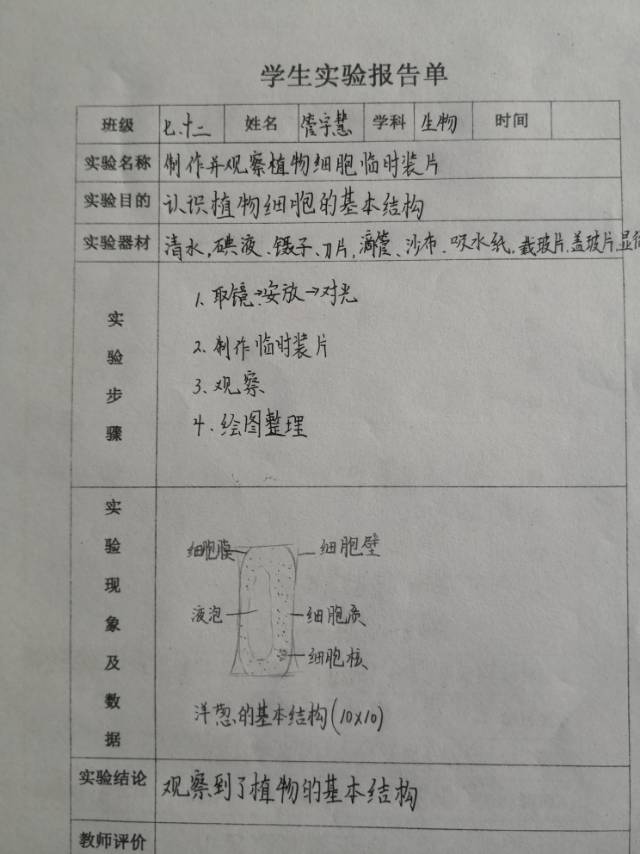 学生实验报告单
班级 七.十二 姓名 管宇慧 学科 生物 时间
实验名称 制作并观察植物细胞临时装片
实验目的 认识植物细胞的基本结构
实验器材 清水,碘液、镊子、刀片,滴管、沙布、吸水纸.载玻片.盖玻片.显
实验步骤
1.取镜→安放→对光
2.制作临时装片
3.观察
4.绘图整理
实验现象及数据
细胞膜 细胞壁
液泡 细胞质
细胞核
洋葱的基本结构(10×10)
实验结论 观察到了植物的基本结构
教师评价